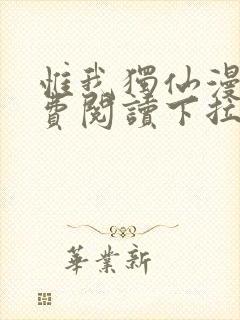 惟我獨仙漫
費閱讀下拉
華業新